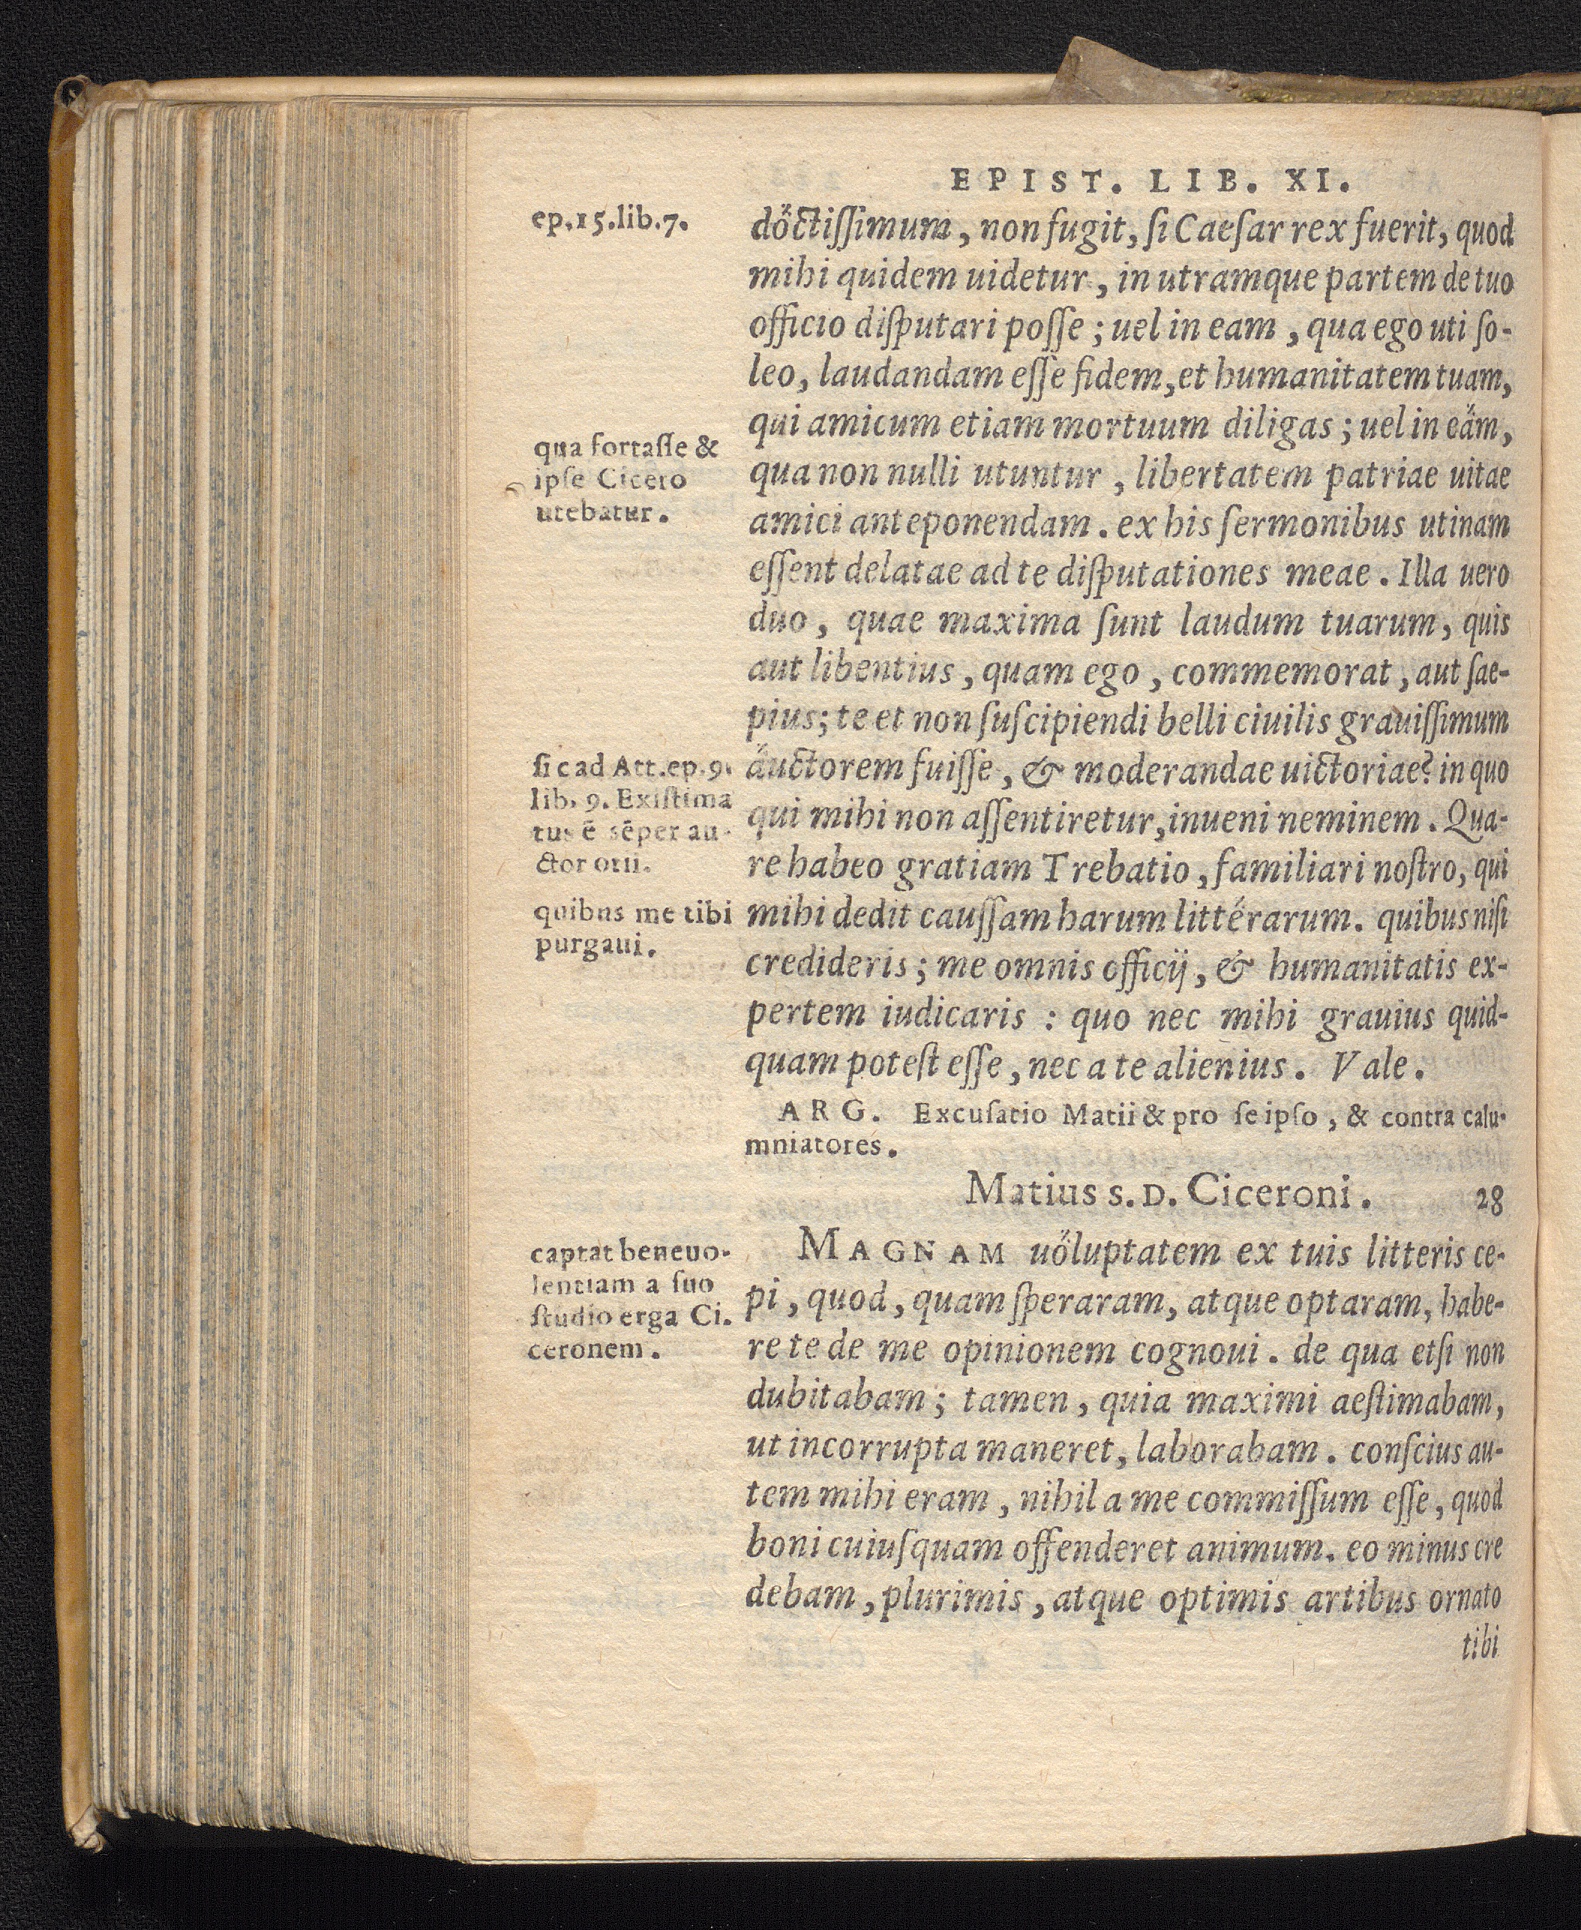 EPIST. LIB. XI.
ep.15.lib.7.
dőctißimum, non fugit, ſi Caeſar rex fuerit, quod
mihi quidem uidetur, in utramque partem de tuo
officio diſputari poſſe; uel in eam, qua ego uti ſo-
leo, laudandam eſſe fidem, et humanitatem tuam,
qui amicum etiam mortuum diligas; uel in eäm,
qua fortaſſe &
ipſe Cicero
utebatur.
qua non nulli utuntur, libertatem patriae uitae
amici anteponendam. ex his ſermonibus utinam
eſſent delatae ad te diſputationes meae. Illa uero
duo, quae maxima ſunt laudum tuarum, quis
aut libentius, quam ego, commemorat, aut ſae-
pius; te et non ſuſcipiendi belli ciuilis grauiſſimum
ſic ad Att.ep.9.
lib. 9. Exiſtima
tus ē sēper au-
ctor otii.
äuctorem fuiſſe, & moderandae uictoriae? in quo
qui mihi non aſſentiretur, inueni neminem. Qua-
re habeo gratiam Trebatio, familiari noſtro, qui
quibus me tibi
purgaui.
mihi dedit cauſſam harum littérarum. quibus niſi
credideris; me omnis officij, & humanitatis ex-
pertem iudicaris: quo nec mihi grauius quid-
quam poteſt eſſe, nec a te alienius. Vale.
ARG. Excuſatio Matii & pro ſe ipſo, & contra calu-
mniatores.
Matius S. D. Ciceroni. 28
captat beneuo-
lentiam a ſuo
ſtudio erga Ci.
ceronem.
MAGNAM uöluptatem ex tuis litteris ce-
pi, quod, quam ſperaram, atque optaram, habe-
re te de me opinionem cognoui. de qua etſi non
dubitabam; tamen, quia maximi aeſtimabam,
ut incorrupta maneret, laborabam. conſcius au-
tem mihi eram, nihil a me commiſſum eſſe, quod
boni cuiuſquam offenderet animum. eo minus cre
debam, plurimis, atque optimis artibus ornato
tibi